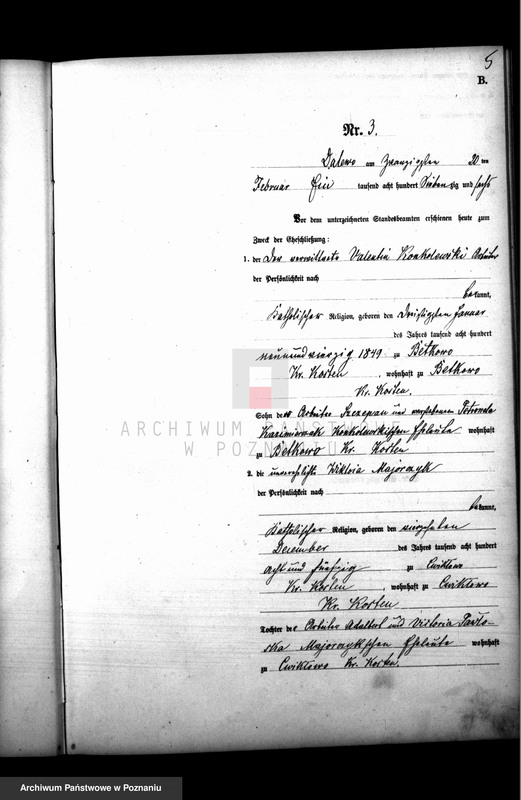 5
B.
Nr. 3.
Dalewo am Zwanzigsten 20 ten
Februar Ein tausend acht hundert Siebenzig und sechs
Vor dem unterzeichneten Standesbeamten erschienen heute zum
Zweck der Eheschließung:
1. der Der verwittwete Valentin Konkolewski Arbeiter
der Persönlichkeit nach
bekannt,
Katholischer Religion, geboren den Dreißigsten Januar
des Jahres tausend acht hundert
neunundvierzig 1849 zu Betkowo
Kr. Kosten, wohnhaft zu Betkowo
Kr. Kosten.
Sohn des Arbeiter Szczepan und verstorbenen Petronela
Kazimierczak Konkolewskischen Eheleute wohnhaft
zu Betkowo Kr. Kosten
2. die unverehelichte Wiktoria Majorczyk
der Persönlichkeit nach
bekannt,
Katholischer Religion, geboren den vierzehnten
Dezember des Jahres tausend acht hundert
acht und fünfzig zu Cwiklowo
Kr. Kosten wohnhaft zu Cwiklowo
Kr. Kosten
Tochter der Arbeiter Adalbert und Victoria
Majorczykschen Eheleute wohnhaft
zu Cwiklowo Kr. Kosten.
ARCHIWUM PAŃSTWOWE
W POZNANIU
Archiwum Państwowe w Poznaniu